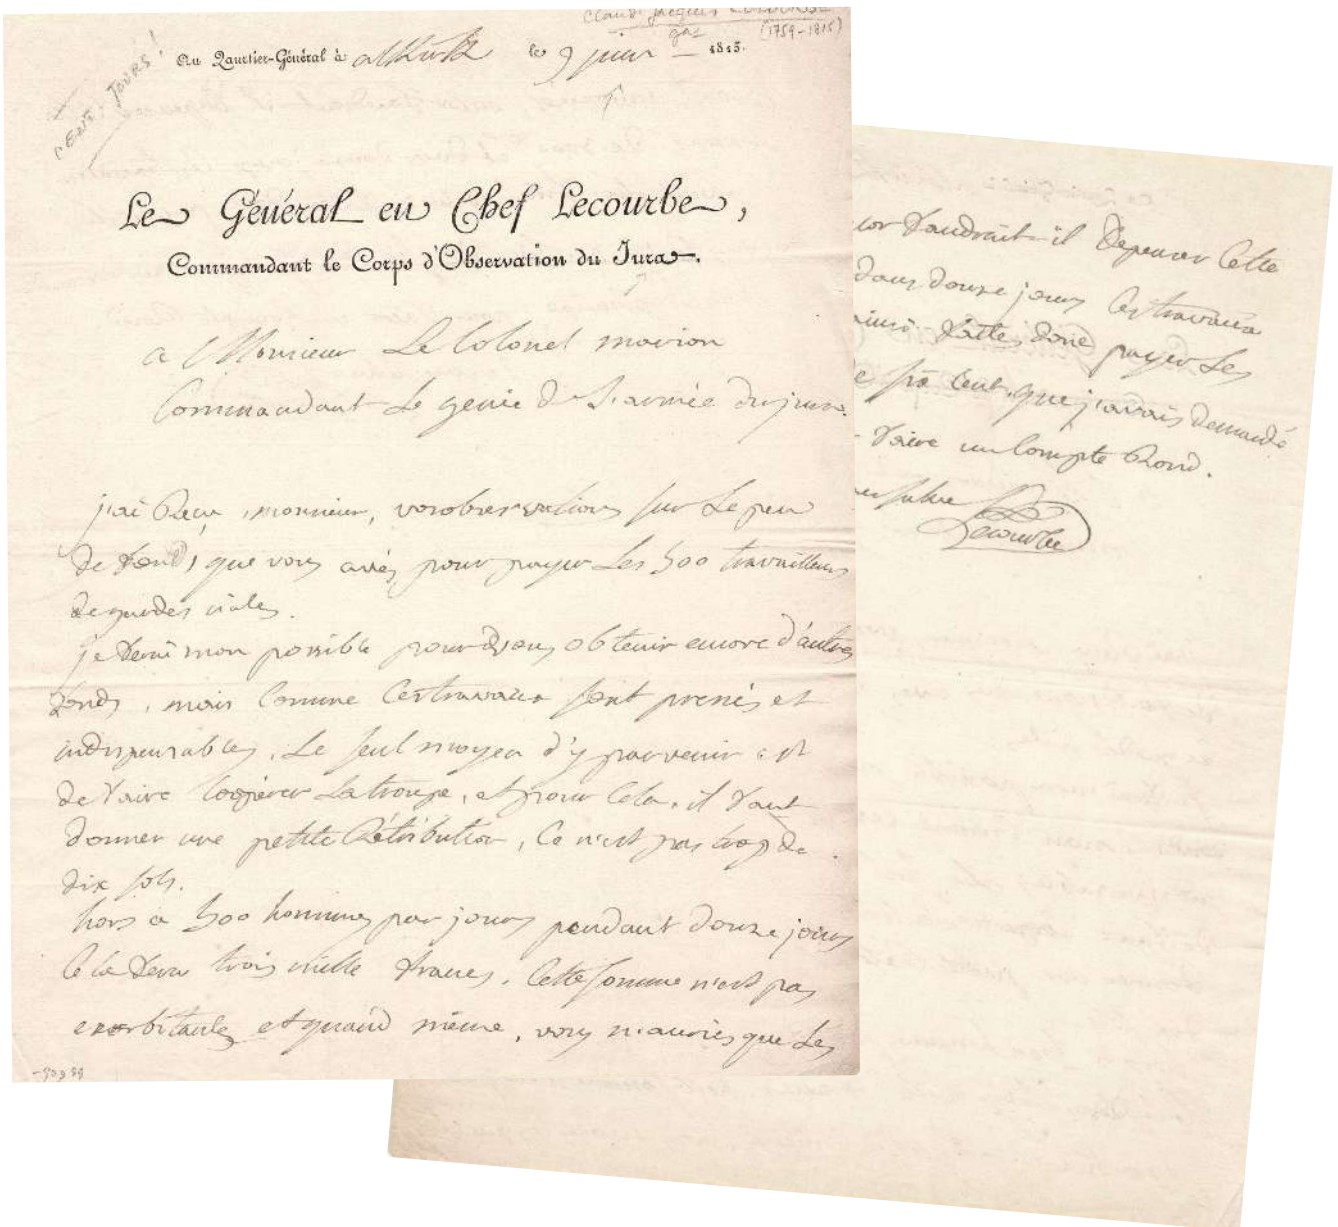 Claude Jacques Lecourbe
gal (1759-1815)
CENT JOURS!
Au Quartier-Général à altkirk le 9 juin 1815.
Le Général en Chef Lecourbe,
Commandant le Corps d'Observation du Jura.
a Monsieur Le Colonel morion
Commandant Le genie de L'armée du jura.
j'ai Reçu, monsieur, vos observations sur Le peu
de fonds que vous avés pour payer Les 500 travailleurs
de gardes
je ferai mon possible pour vous obtenir encore d'autres
fonds, mais Comme Ces travaux sont pressés et
indispensables, Le seul moyen d'y parvenir est
de faire Coopérer La troupe, et pour Cela, il faut
donner une petite Rétribution, Ce n'est pas trop de
dix sols.
hors a 500 hommes par jours pendant douze jours
Cela fera trois mille francs. Cette somme n'est pas
exorbitante et quand même, vous n'auriés que Les
-90999
cor faudrait-il depenser Cette
dans douze jours Ces travaux
ainsi faites donc payer Les
e six Cent que j'avais demandé
faire un Compte Rond.
salue
Lecourbe